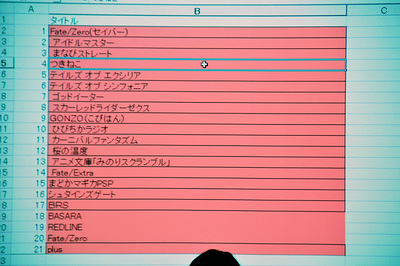 A B C
1 タイトル
2 1 Fate/Zero(セイバー)
3 2 アイドルマスター
4 3 まなびストレート
5 4 つきねこ
6 5 テイルズ オブ エクシリア
7 6 テイルズ オブ シンフォニア
8 7 ゴッドイーター
9 8 スカーレッドライダーゼクス
10 9 GONZO(こぴはん)
11 10 ひびちかラジオ
12 11 カーニバルファンタズム
13 12 桜の温度
14 13 アニメ文庫「みのりスクランブル」
15 14 Fate/Extra
16 15 まどかマギカPSP
17 16 シュタインズゲート
18 17 BRS
19 18 BASARA
20 19 REDLINE
21 20 Fate/Zero
22 21 plus